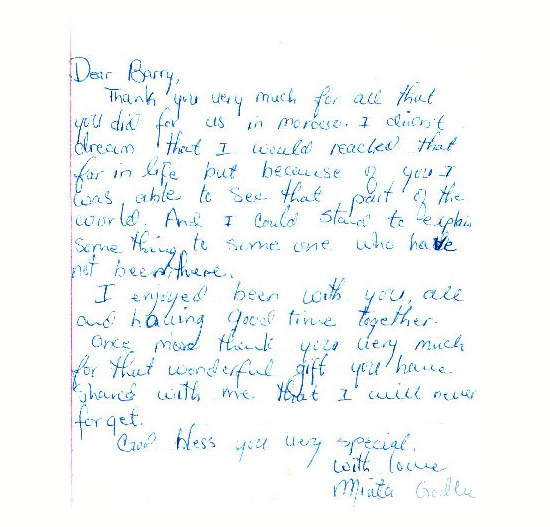 Dear Barry,
Thank you very much for all that
you did for us in morocco. I didn't
dream that I would reached that
far in life but because of you I
was able to see that part of the
world. And I could stand to explain
some thing to some one who have
not been there.
I enjoyed been with you all
and having good time together.
Once more thank you very much
for that wonderful gift you have
shared with me that I will never
forget.
God bless you very special.
with love
Miata